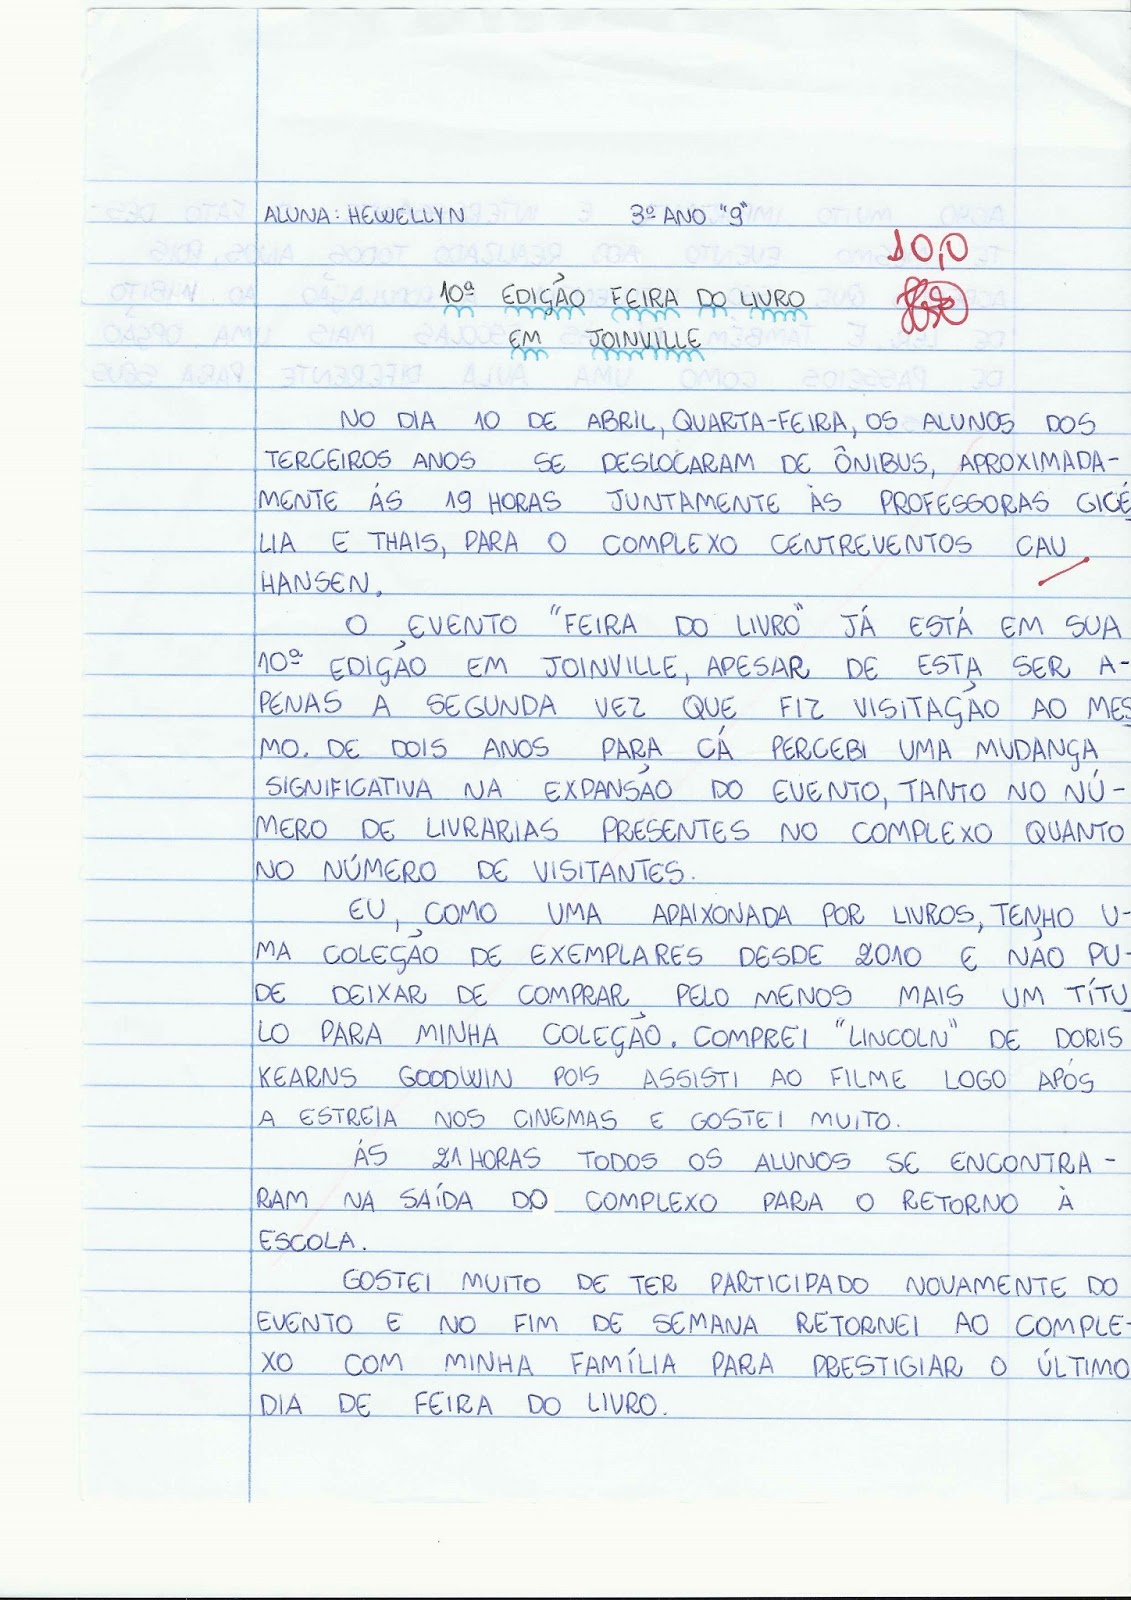 ALUNA: HEWELLYN 3º ANO "9"
10,0
10ª EDIÇÃO FEIRA DO LIVRO
EM JOINVILLE
NO DIA 10 DE ABRIL, QUARTA-FEIRA, OS ALUNOS DOS
TERCEIROS ANOS SE DESLOCARAM DE ÔNIBUS, APROXIMADA-
MENTE ÁS 19 HORAS JUNTAMENTE ÀS PROFESSORAS GICÉ
LIA E THAIS, PARA O COMPLEXO CENTREVENTOS CAU
HANSEN.
O EVENTO "FEIRA DO LIVRO" JÁ ESTÁ EM SUA
10ª EDIÇÃO EM JOINVILLE, APESAR DE ESTA SER A-
PENAS A SEGUNDA VEZ QUE FIZ VISITAÇÃO AO MES
MO. DE DOIS ANOS PARA CÁ PERCEBI UMA MUDANÇA
SIGNIFICATIVA NA EXPANSÃO DO EVENTO, TANTO NO NÚ-
MERO DE LIVRARIAS PRESENTES NO COMPLEXO QUANTO
NO NÚMERO DE VISITANTES.
EU, COMO UMA APAIXONADA POR LIVROS, TENHO U-
MA COLEÇÃO DE EXEMPLARES DESDE 2010 E NÃO PU-
DE DEIXAR DE COMPRAR PELO MENOS MAIS UM TÍTU
LO PARA MINHA COLEÇÃO. COMPREI "LINCOLN" DE DORIS
KEARNS GOODWIN POIS ASSISTI AO FILME LOGO APÓS
A ESTREIA NOS CINEMAS E GOSTEI MUITO.
ÁS 21 HORAS TODOS OS ALUNOS SE ENCONTRA-
RAM NA SAÍDA DO COMPLEXO PARA O RETORNO À
ESCOLA.
GOSTEI MUITO DE TER PARTICIPADO NOVAMENTE DO
EVENTO E NO FIM DE SEMANA RETORNEI AO COMPLE-
XO COM MINHA FAMÍLIA PARA PRESTIGIAR O ÚLTIMO
DIA DE FEIRA DO LIVRO.